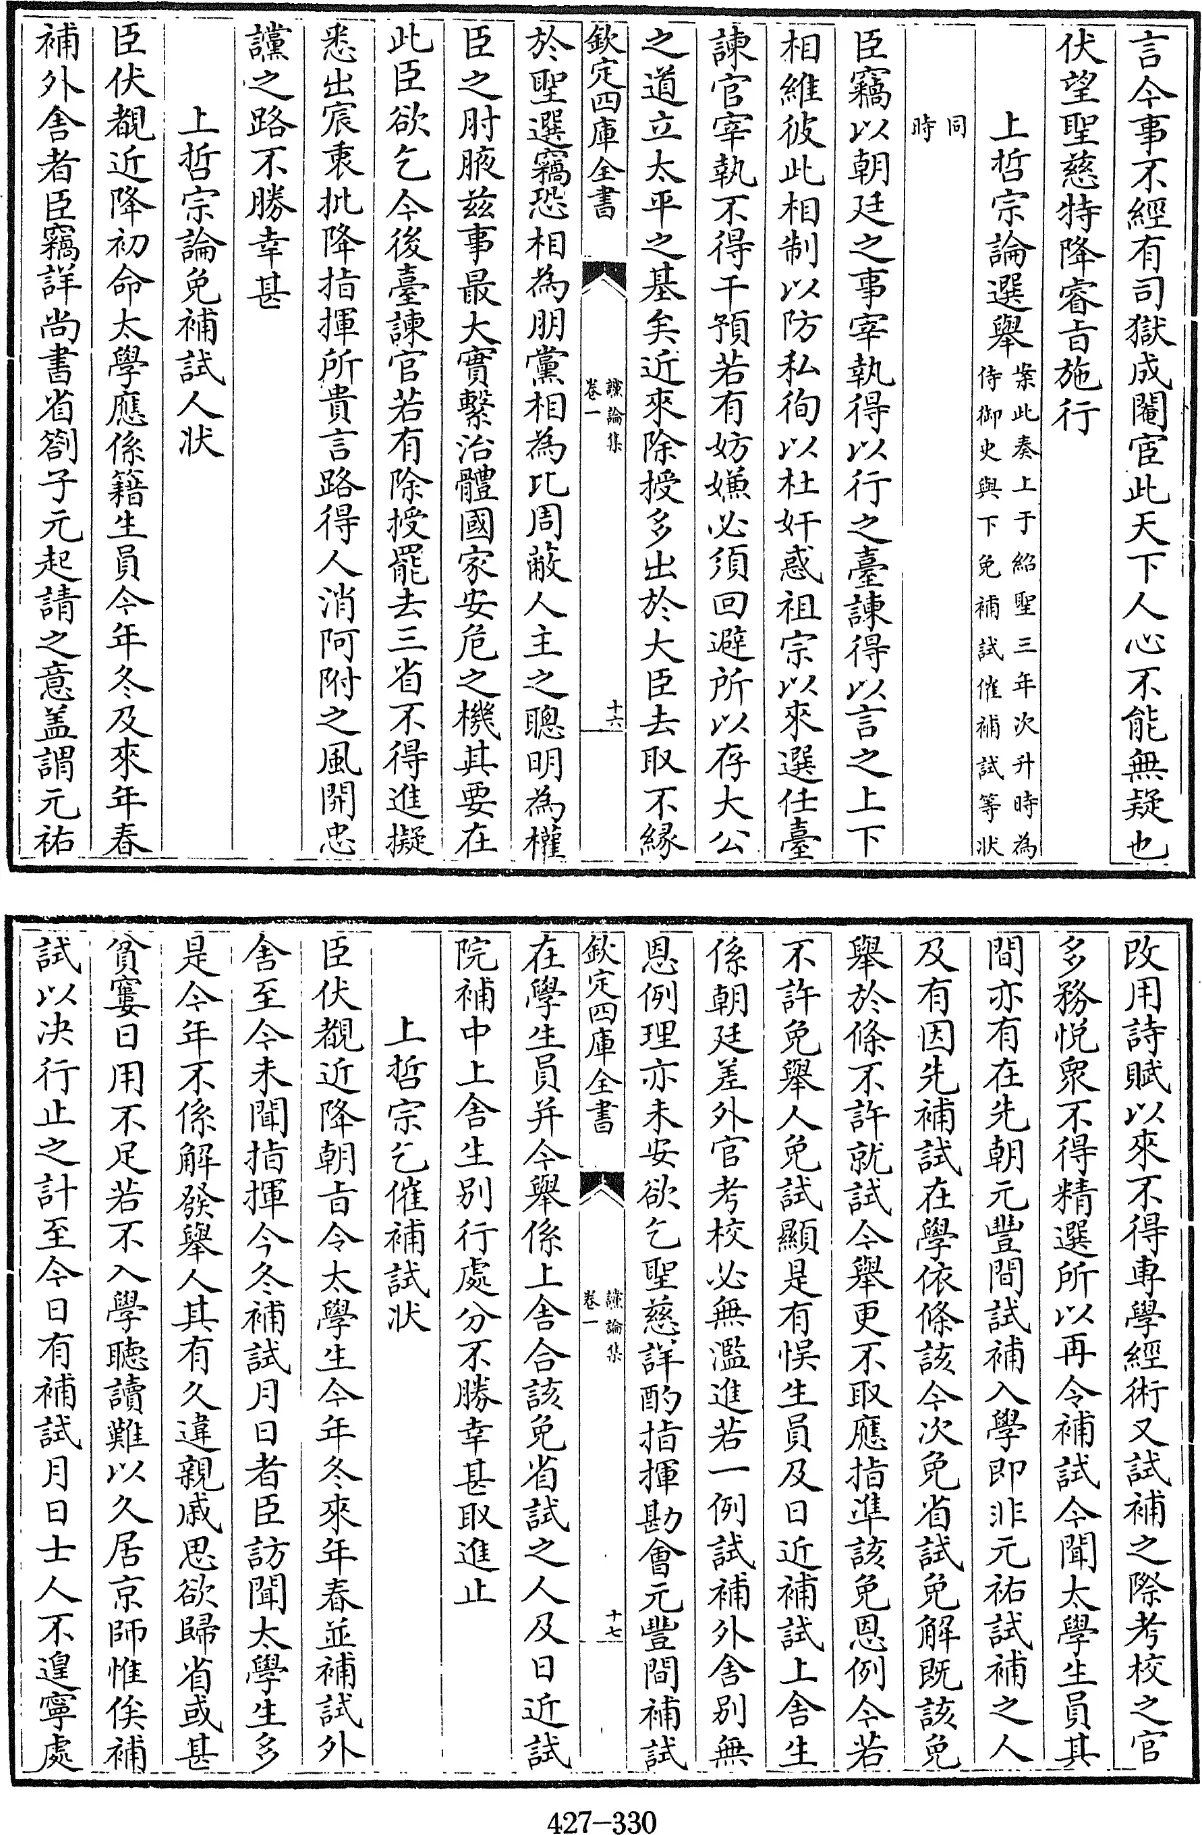 言今事不經有司獄成閹宦此天下人心不能無疑也
伏望聖慈特降睿旨施行
上哲宗論選舉案此奏上于紹聖三年次升時為
侍御史與下免補試催補試等狀
同
時
臣竊以朝廷之事宰執得以行之臺諫得以言之上下
相維彼此相制以防私徇以杜奸惑祖宗以來選任臺
諫官宰執不得干預若有妨嫌必須回避所以存大公
之道立太平之基矣近來除授多出於大臣去取不緣
欽定四庫全書
讜論集
卷一
十六
於聖選竊恐相為朋黨相為比周蔽人主之聰明為權
臣之肘腋兹事最大實繫治體國家安危之機其要在
此臣欲乞今後臺諫官若有除授罷去三省不得進擬
悉出宸衷批降指揮所貴言路得人消阿附之風開忠
讜之路不勝幸甚
上哲宗論免補試人狀
臣伏覩近降初命太學應係籍生員今年冬及來年春
補外舍者臣竊詳尚書省劄子元起請之意盖謂元祐
改用詩賦以來不得專學經術又試補之際考校之官
多務悦衆不得精選所以再令補試今聞太學生員其
間亦有在先朝元豐間試補入學即非元祐試補之人
及有因先補試在學依條該今次免省試免解既該免
舉於條不許就試今舉更不取應指準該免恩例今若
不許免舉人免試顯是有悞生員及日近補試上舍生
係朝廷差外官考校必無濫進若一例試補外舍別無
恩例理亦未安欲乞聖慈詳酌指揮勘會元豐間補試
欽定四庫全書
讜論集
卷一
十七
在學生員并今舉係上舍合該免省試之人及日近試
院補中上舍生別行處分不勝幸甚取進止
上哲宗乞催補試狀
臣伏覩近降朝旨令太學生今年冬來年春並補試外
舍至今未聞指揮今冬補試月日者臣訪聞太學生多
是今年不係解發舉人其有久違親戚思欲歸省或甚
貧窶日用不足若不入學聽讀難以久居京師惟俟補
試以决行止之計至今日有補試月日士人不遑寧處
427-330